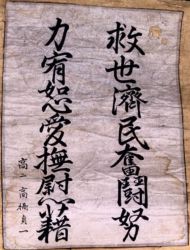 救世濟民奮鬪努
力宥恕愛撫慰藉
高二 高橋貞一